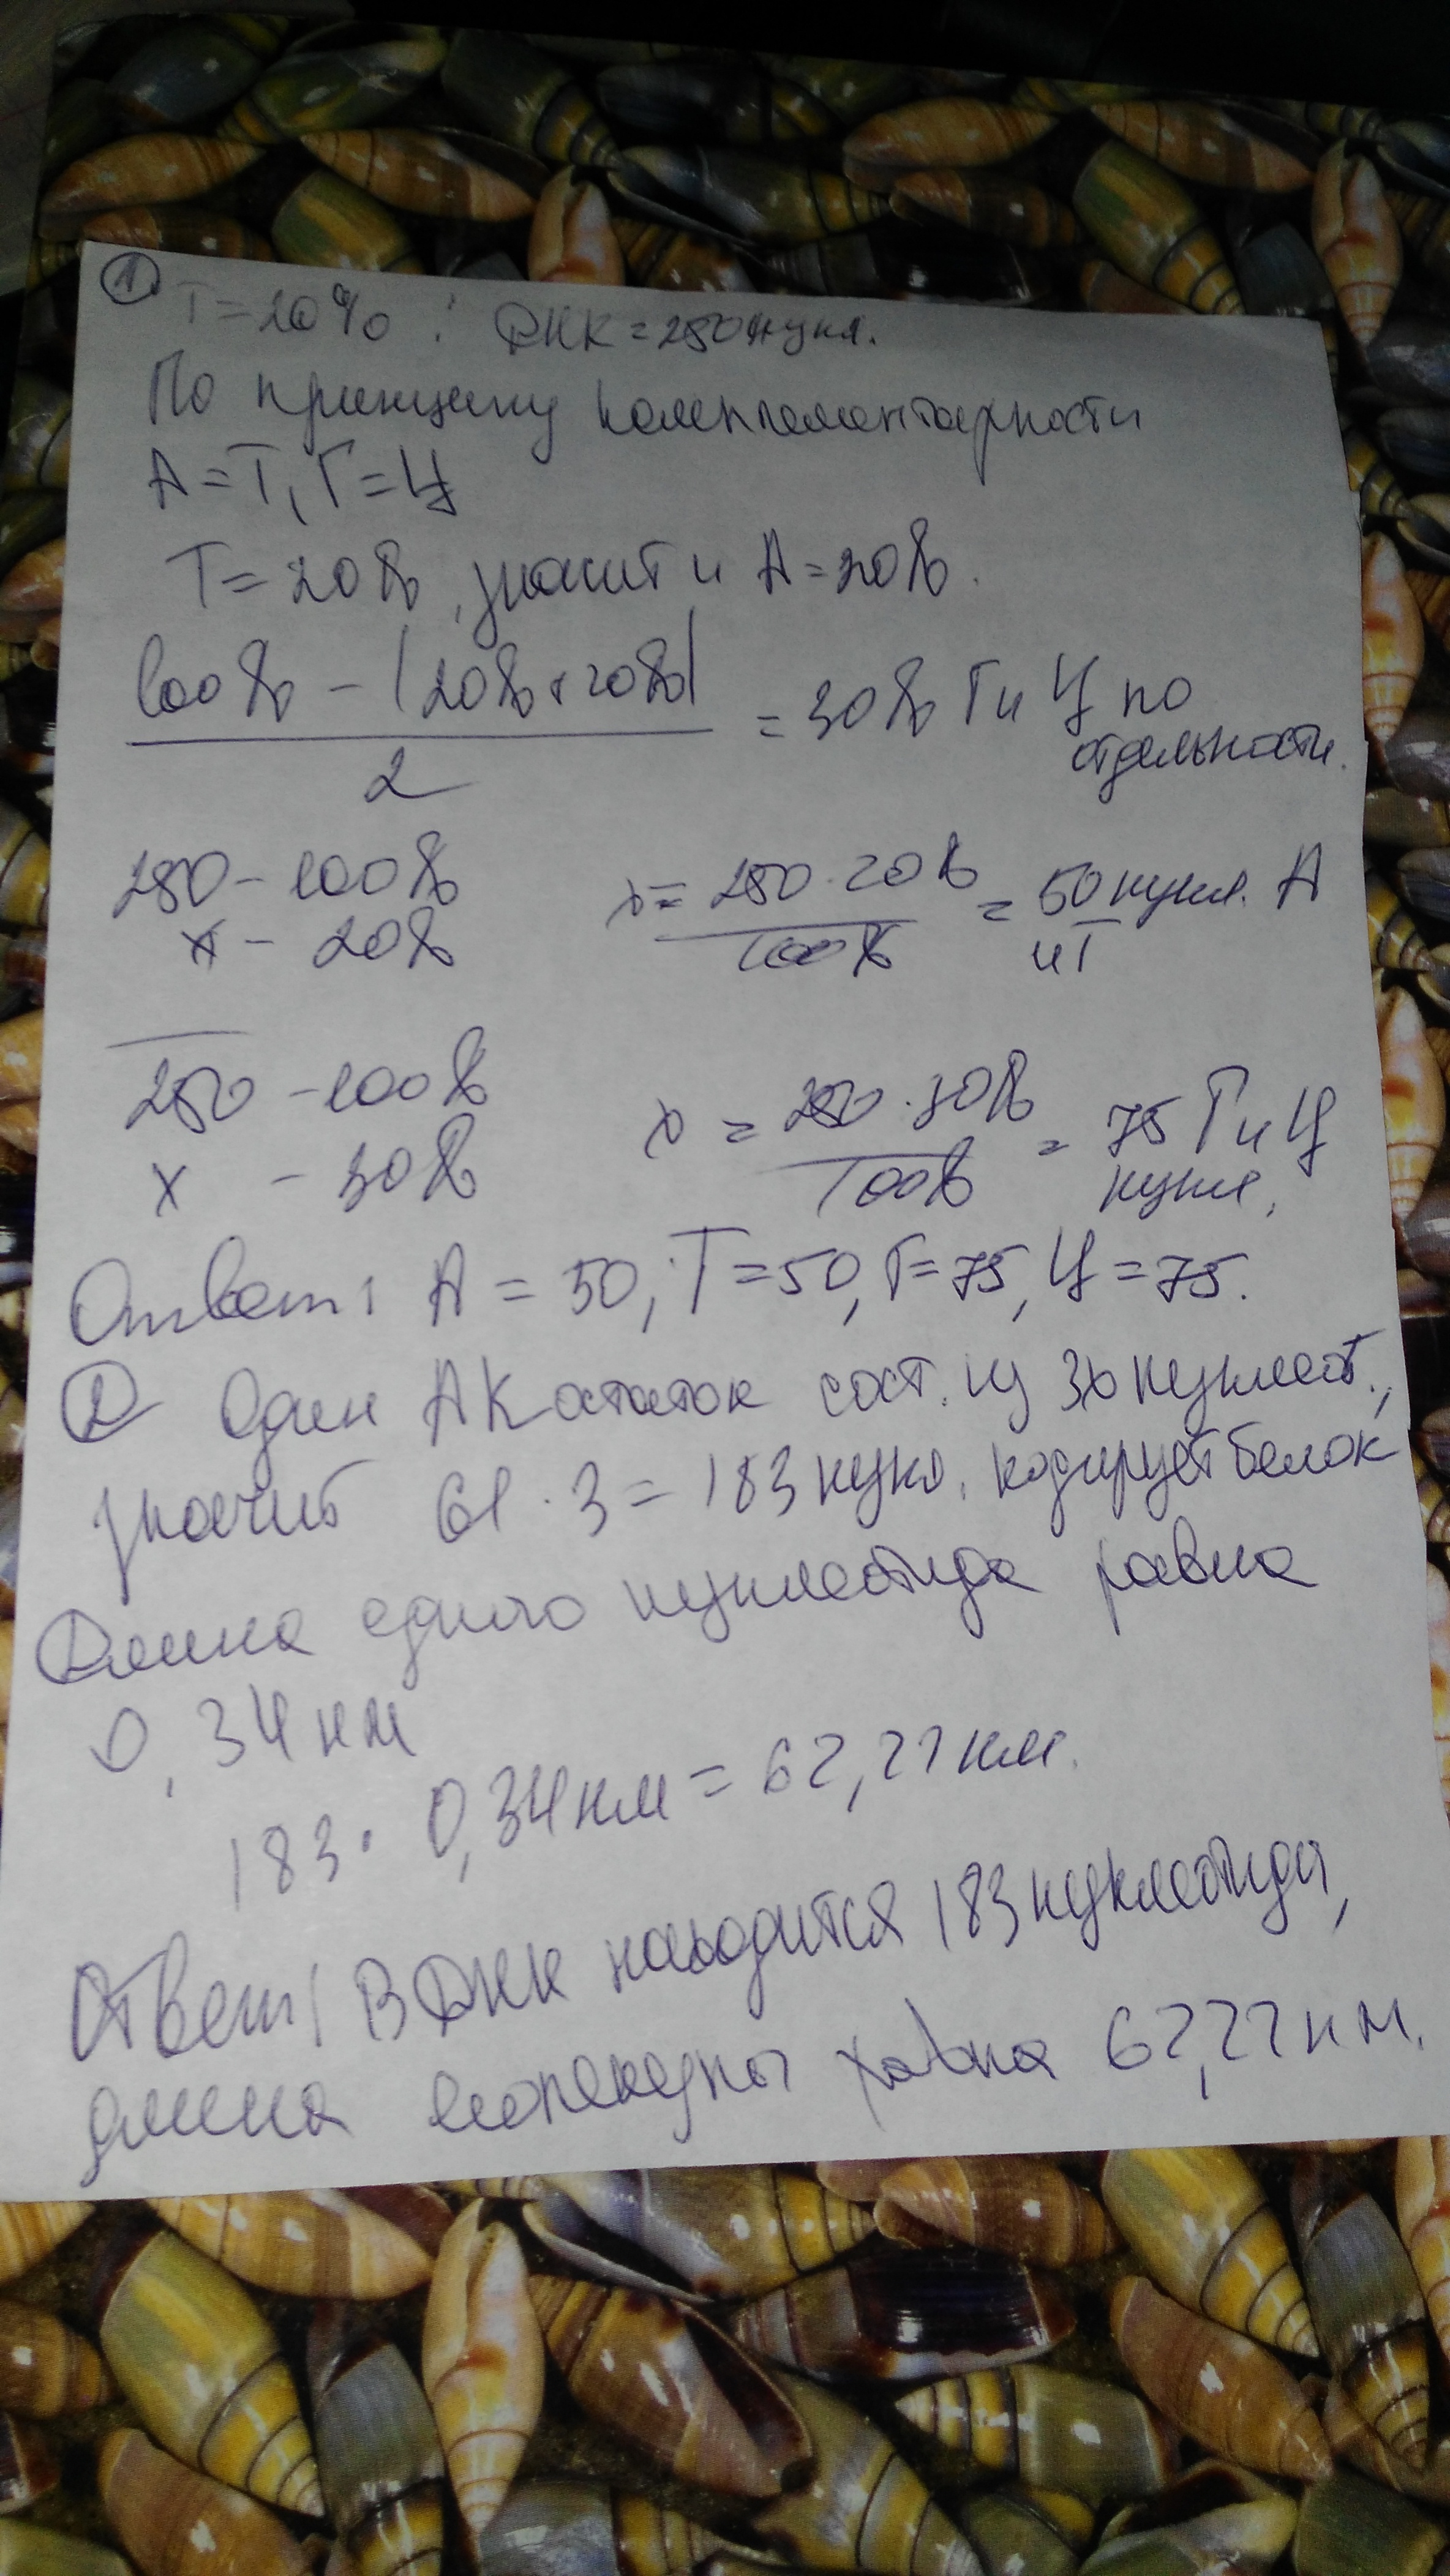 ① Т=20% : ДНК=250нукл.
По принципу комплементарности
А=Т, Г=Ц
Т=20%, значит и А=20%.
100%-(20%+20%)
2
=30% Г и Ц по
отдельности.
250-100%
х-20%
х=250·20%
100%
=50 нукл. А
и Т
250-100%
х-30%
х=250·30%
100%
=75 Г и Ц
нукл.
Ответ: А=50, Т=50, Г=75, Ц=75.
② Один АК остаток сост. из 3х нуклеот.,
значит 61·3=183 нукл. кодирует белок
Длина одного нуклеотида равна
0,34нм
183·0,34нм=62,22нм.
Ответ: В ДНК находится 183 нуклеотида,
длина молекулы равна 62,22нм.